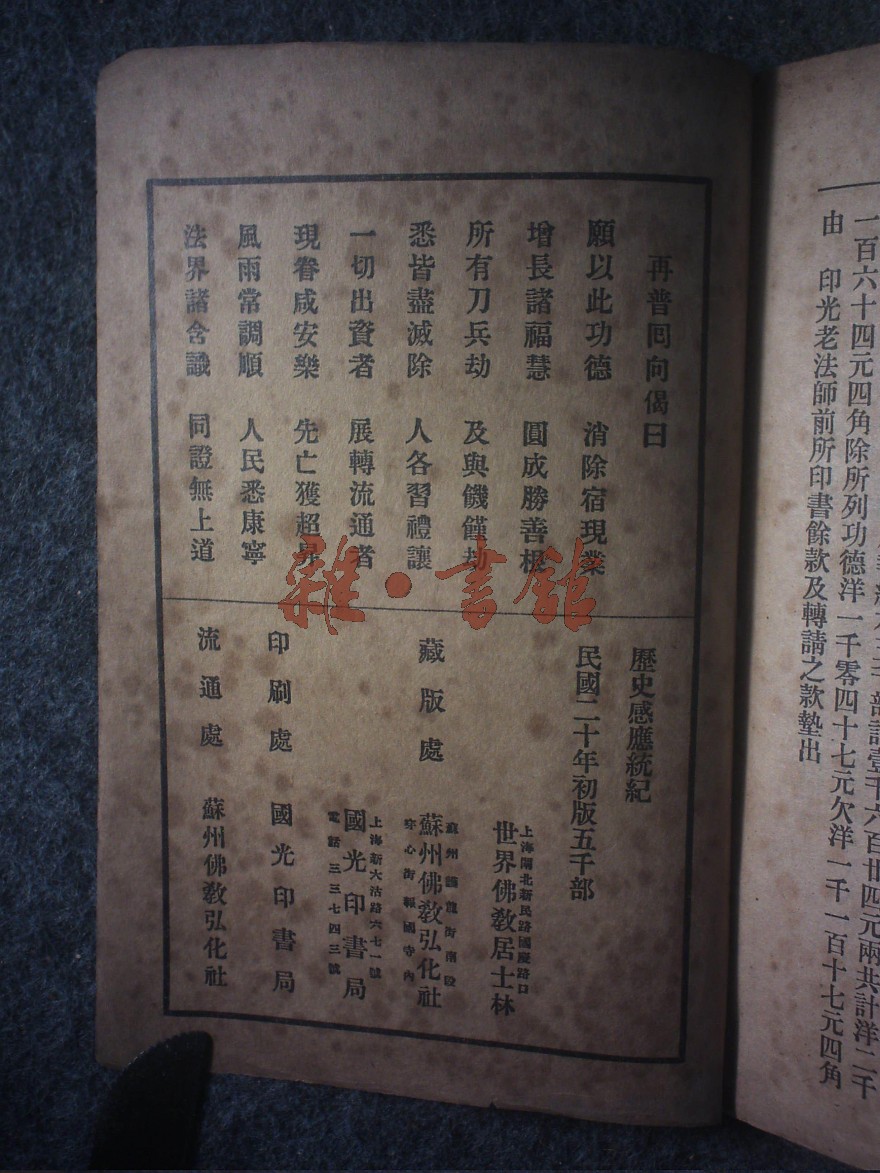 一百六十四元四角除所列功德洋一千零四十七元欠洋一千一百十七元四角
由　印光老法師前所印書餘款及轉請之款墊出
再普囘向偈曰
願以此功德　消除宿現業
增長諸福慧　圓成勝善根
所有刀兵劫　及與饑饉劫
悉皆盡滅除　人各習禮讓
一切出資者　展轉流通者
現眷咸安樂　先亡獲超昇
風雨常調順　人民悉康寧
法界諸含識　同證無上道
歷史感應統紀
民國二十年初版五千部
藏版處
上海閘北新民路國慶路口
世界佛教居士林
蘇州護龍街南段
蘇州佛教弘化社
穿心街報國寺內
上海新大沽路六七一號
國光印書局
電話三三七四三號
印刷處　國光印書局
流通處　蘇州佛教弘化社
雜·書館